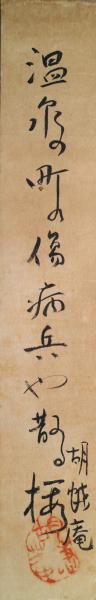 温泉の町の傷病兵や散る桜
胡蝶庵